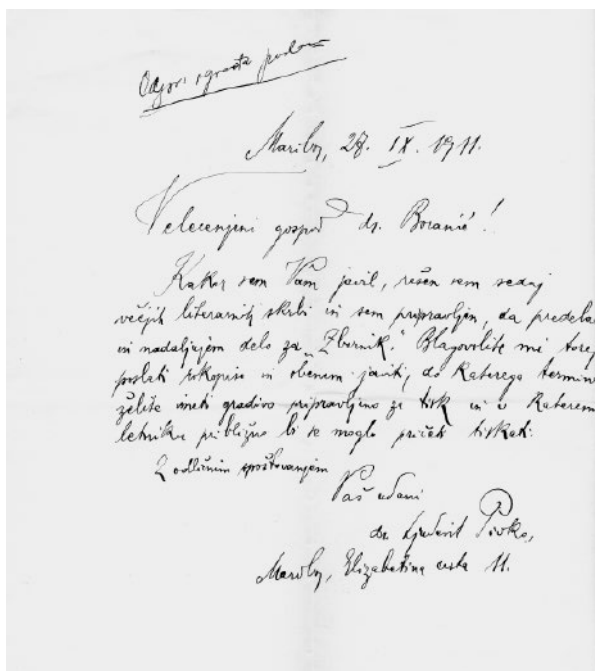 Maribor, 28. IX. 1911.
Velecenjeni gospod dr. Boranić!
Kakor sem Vam javil, rešen sem sedaj
večjih literarnih skrbi in sem pripravljen, da predelam
in nadaljujem delo za „Zbornik.“ Blagovolite mi torej
poslati rokopise in obenem javiti, do katerega termina
želite imeti gradivo pripravljeno za tisk in v katerem
letniku približno bi se moglo pričeti tiskati.
Z odličnim spoštovanjem
Vaš udani
dr. Ljudevit Pivko,
Maribor, Elizabetina cesta 11.